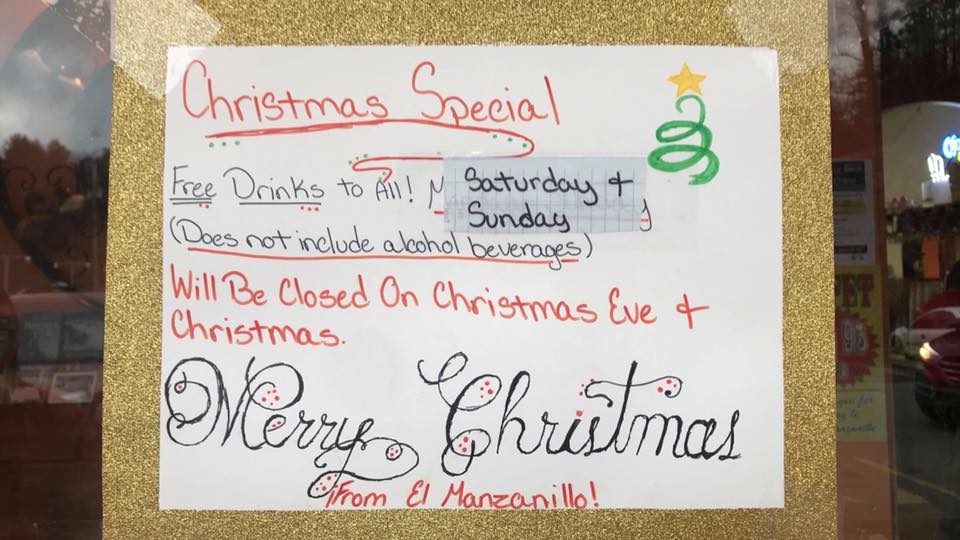 Christmas Special
Free Drinks to All! Saturday +
Sunday
(Does not include alcohol beverages)
Will Be Closed On Christmas Eve +
Christmas.
Merry Christmas
¡From El Manzanillo!